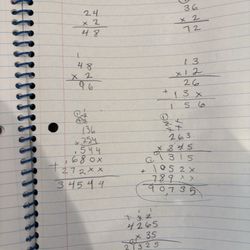 24
x 2
48
36
x 2
72
1
48
x 2
96
13
x 12
26
+ 13x
156
136
x 254
544
+ 680x
272xx
34544
263
x 345
1315
+ 1052x
789xx
90735
4265
x 35
21325